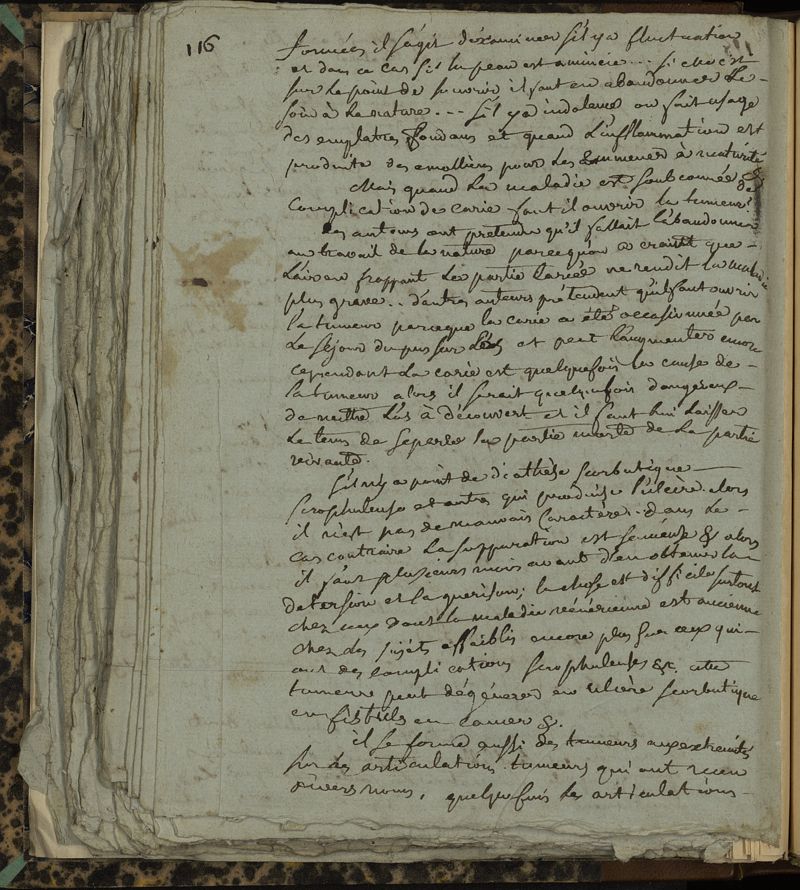 116
formées il s'agit d'éxaminer s'il y a fluctuation
et dans ce cas si la peau est amincie... si elle est
sur le point de s'ouvrir il faut en abandonner le
soin à la nature... s'il y a indolence on fait usage
des emplatres fondans et quand l'inflammation est
produite des emolliens pour les amener à maturité
Mais quand la maladie est soubconnée de
complication de carie faut il ouvrir la tumeur?
les auteurs ont prétendu qu'il fallait l'abandonner
au travail de la nature parcequ'on a craint que
l'air en frappant la partie cariée ne rendit la maladie
plus grave.. d'autres auteurs prétendent qu'il faut ouvrir
la tumeur parceque la carie a été occasionnée par
le séjour du pus sur l'os et peut l'augmenter encore
cependant la carie est quelquefois la cause de
la tumeur alors il serait quelquefois dangereux
de mettre l'os à découvert et il faut lui laisser
le tems de separer la partie morte de la partie
vivante.
s'il n'y a point de diathèse scorbutique
scrophuleuse et autres qui produise l'ulcère alors
il n'est pas de mauvais caractère. dans le
cas contraire la suppuration est sanieuse & alors
il faut plusieurs mois avant d'en obtenir la
detersion et la guerison; la chose est difficile surtout
chez ceux dont la maladie vénérienne est ancienne
chez les sujets affaiblis encore plus sur ceux qui
ont des complications scrophuleuses &c. cette
tumeur peut dégénérer en ulcère scorbutique
en fistules en cancer &.
il se forme aussi des tumeurs aux extremités
sur les articulations tumeurs qui ont recu
divers noms, quelquefois les articulations